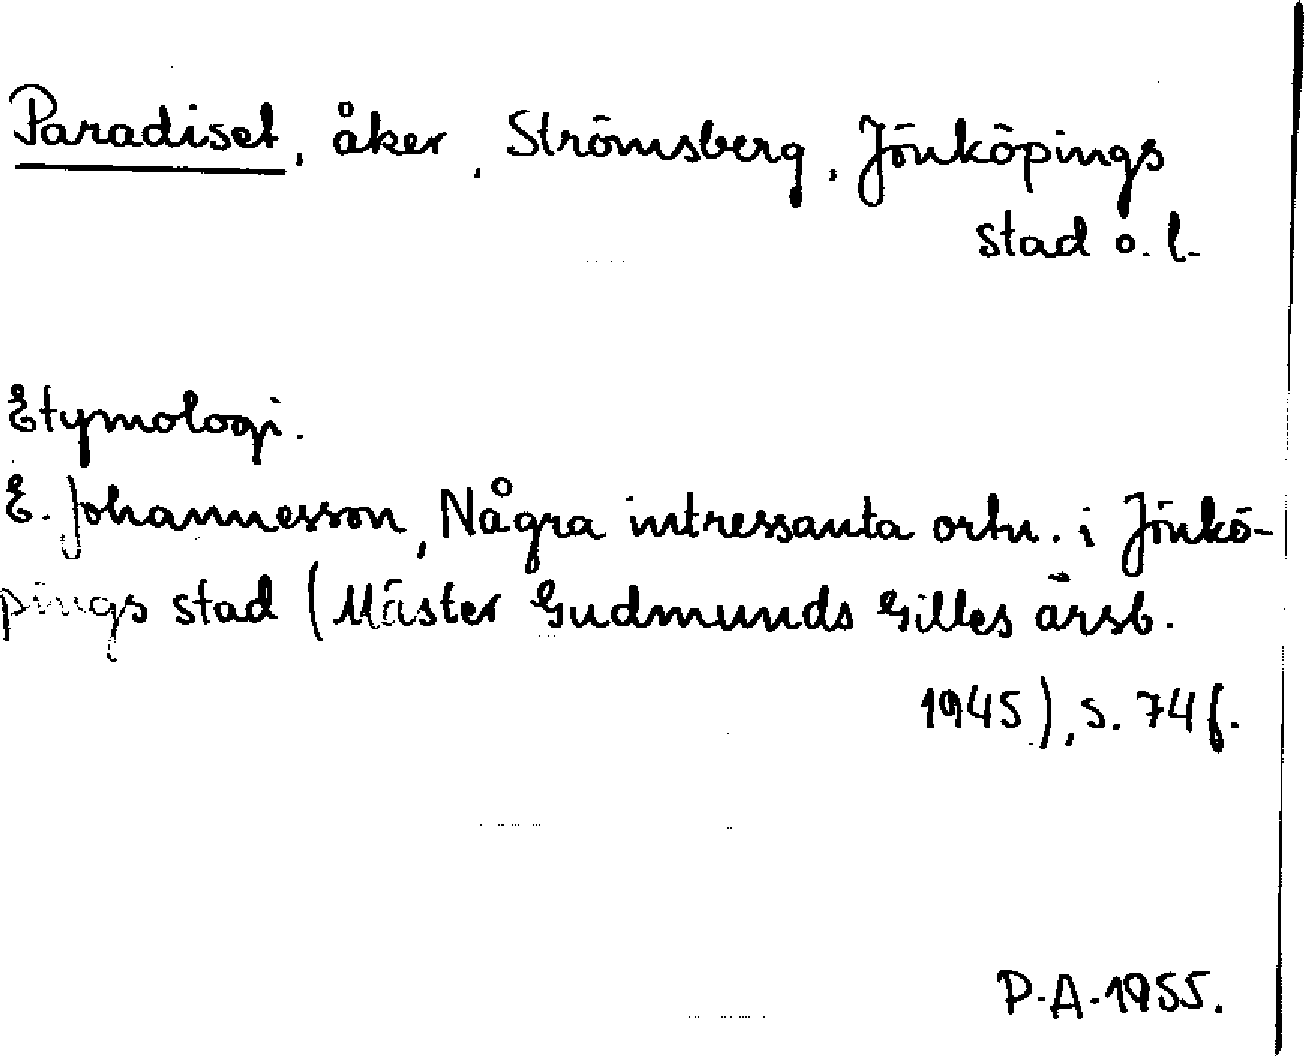 Paradiset, åker, Strömsberg, Jönköpings
stad o. l.
Etymologi.
E. Johannesson, Några intressanta ortn. i Jönkö-
pings stad (Mäster Gudmunds Gilles årsb.
1945), s. 74 f.
P.A. 1955.